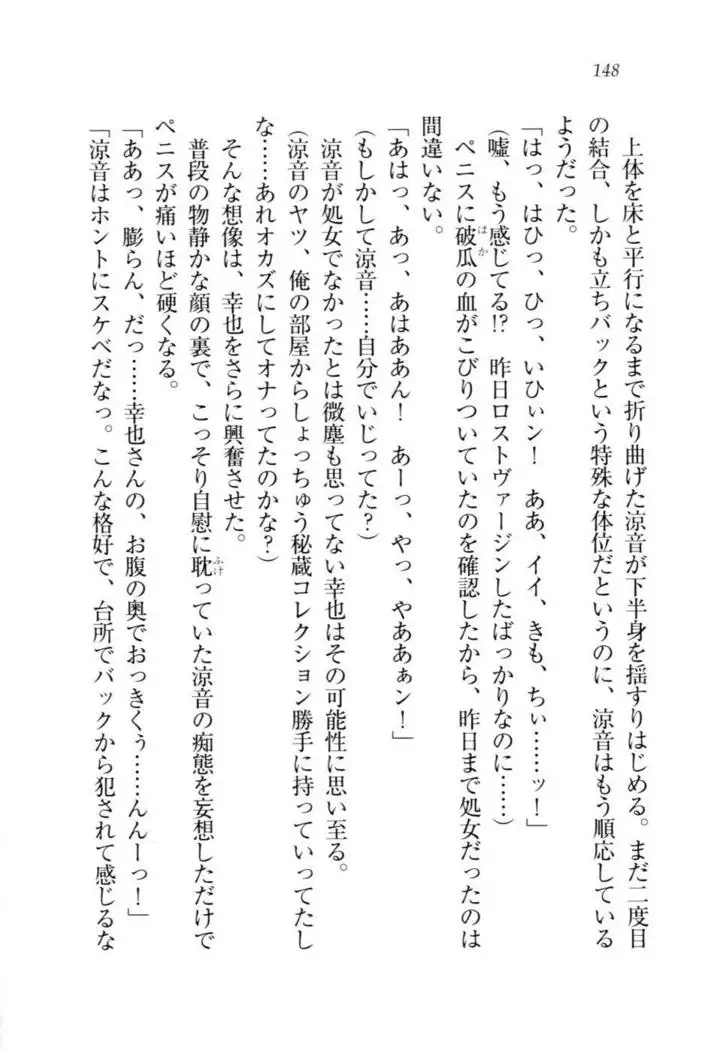 148
上体を床と平行になるまで折り曲げた涼音が下半身を揺すりはじめる。まだ二度目
の結合、しかも立ちバックという特殊な体位だというのに、涼音はもう順応している
ようだった。
「はっ、はひっ、ひっ、いひぃン！　ああ、イイ、きも、ちぃ……ッ！」
(嘘、もう感じてる!?　昨日ロストヴァージンしたばっかりなのに……)
ペニスに破瓜の血がこびりついていたのを確認したから、昨日まで処女だったのは
間違いない。
「あはっ、あっ、あはああん！　あーっ、やっ、やああぁン！」
(もしかして涼音……自分でいじってた？)
涼音が処女でなかったとは微塵も思ってない幸也はその可能性に思い至る。
(涼音のヤツ、俺の部屋からしょっちゅう秘蔵コレクション勝手に持っていってたし
な……あれオカズにしてオナってたのかな？)
そんな想像は、幸也をさらに興奮させた。
普段の物静かな顔の裏で、こっそり自慰に耽っていた涼音の痴態を妄想しただけで
ペニスが痛いほど硬くなる。
「ああっ、膨らん、だっ……幸也さんの、お腹の奥でおっきくぅ……んんーっ！」
「涼音はホントにスケベだなっ。こんな格好で、台所でバックから犯されて感じるな